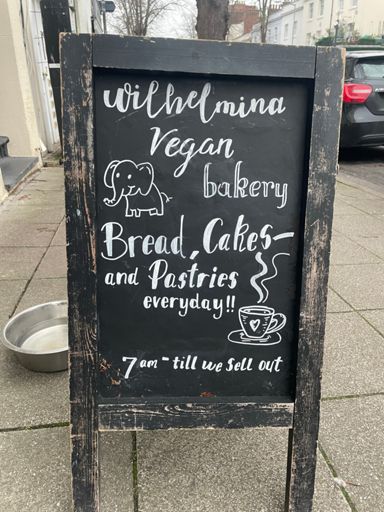 Wilhelmina
Vegan
bakery
Bread, Cakes-
and Pastries
everyday!!
7am - till we Sell out